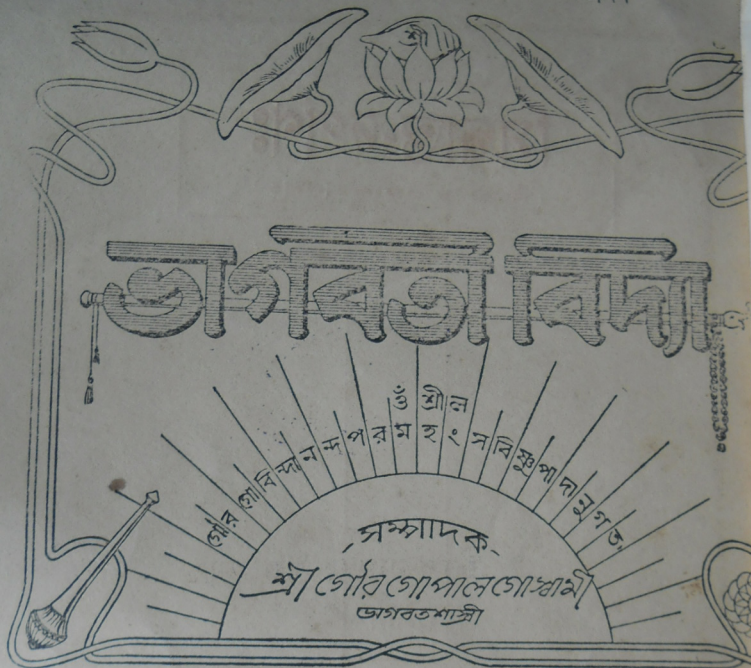 ভাগবতী বিদ্যা
ওঁ শ্রী ল
গৌর গোবিন্দানন্দ পরমহংস বিষ্ণুপাদানুগত
সম্পাদক
শ্রী গৌরগোপাল গোস্বামী
ভাগবতশাস্ত্রী